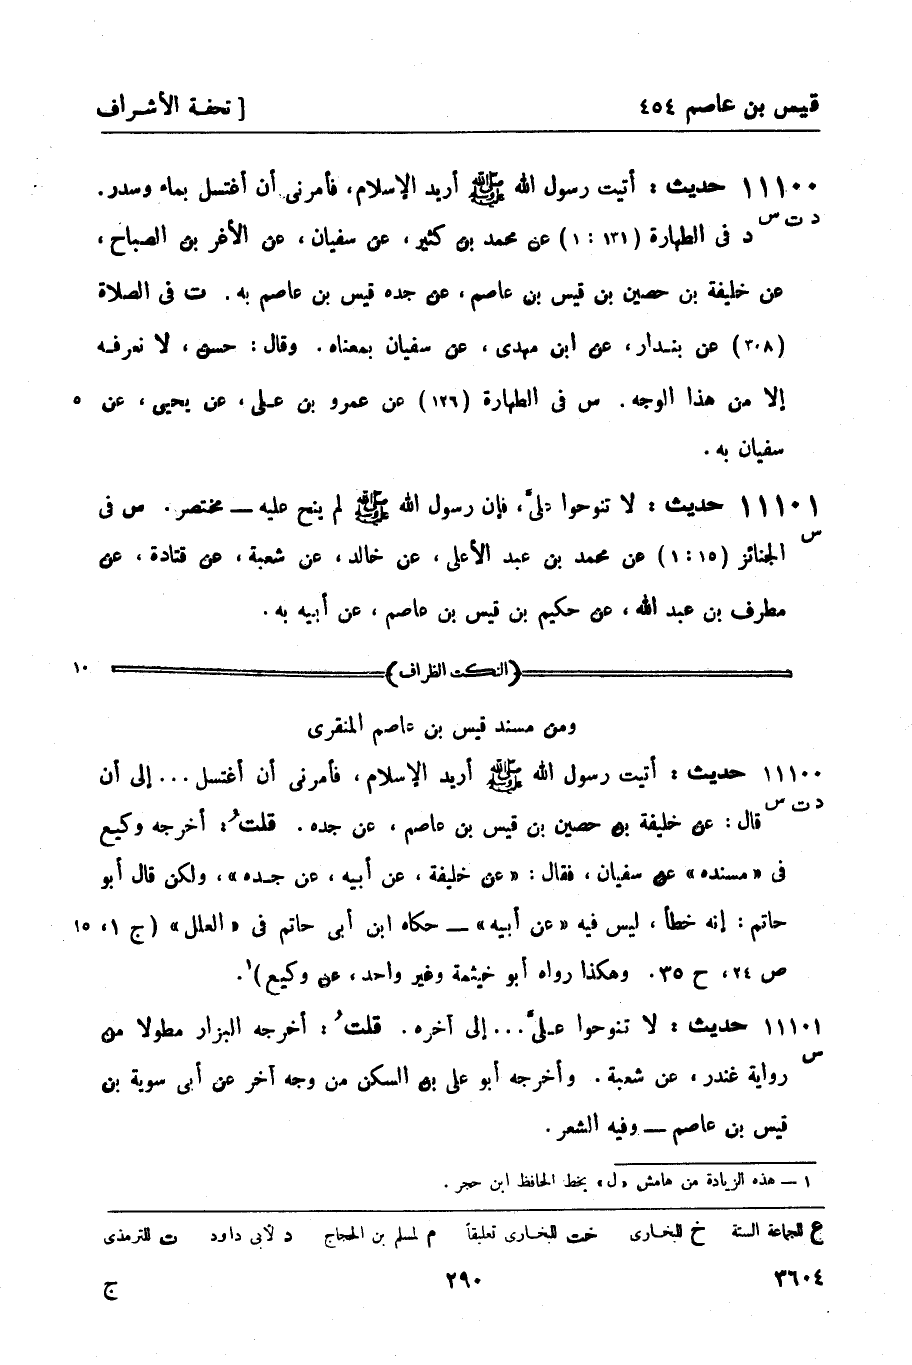 قيس بن عاصم ٤٥٤ [ تحفة الأشراف
١١١٠٠ حديث : أتيت رسول الله ﷺ أريد الإسلام، فأمرنى أن أغتسل بماء وسدر.
د ت س
د فى الطهارة (١٣١ : ١) عن محمد بن كثير، عن سفيان، عن الأغر بن الصباح،
عن خليفة بن حصين بن قيس بن عاصم، عن جده قيس بن عاصم به. ت فى الصلاة
(٣٠٨) عن بندار، عن ابن مهدى، عن سفيان بمعناه. وقال: حسن، لا نعرفه
إلا من هذا الوجه. س فى الطهارة (١٢٦) عن عمرو بن على، عن يحيى، عن ٥
سفيان به.
١١١٠١ حديث : لا تنوحوا علىَّ، فإن رسول الله ﷺ لم ينح عليه — مختصر. س فى
س
الجنائز (١٥ : ١) عن محمد بن عبد الأعلى، عن خالد، عن شعبة، عن قتادة، عن
مطرف بن عبد الله، عن حكيم بن قيس بن عاصم، عن أبيه به.
(النكت الظراف) ١٠
ومن مسند قيس بن عاصم المنقرى
١١١٠٠ حديث : أتيت رسول الله ﷺ أريد الإسلام، فأمرنى أن أغتسل ... إلى أن
د ت س
قال : عن خليفة بن حصين بن قيس بن عاصم، عن جده. قلتُ: أخرجه وكيع
فى «مسنده» عن سفيان، فقال : «عن خليفة، عن أبيه، عن جده»، ولكن قال أبو
حاتم : إنه خطأ، ليس فيه «عن أبيه» — حكاه ابن أبى حاتم فى «العلل» (ج ١، ١٥
ص ٢٤، ح ٣٥. وهكذا رواه أبو خيثمة وغير واحد، عن وكيع)١.
١١١٠١ حديث : لا تنوحوا علىَّ ... إلى آخره. قلتُ: أخرجه البزار مطولا من
س
رواية غندر، عن شعبة. وأخرجه أبو على بن السكن من وجه آخر عن أبى سوية بن
قيس بن عاصم — وفيه الشعر.
١ — هذه الزيادة من هامش «ل» بخط الحافظ ابن حجر.
ع للجماعة الستة خ للبخارى خت للبخارى تعليقاً م لمسلم بن الحجاج د لأبى داود ت للترمذى
٣٦٠٤ ٢٩٠ ج